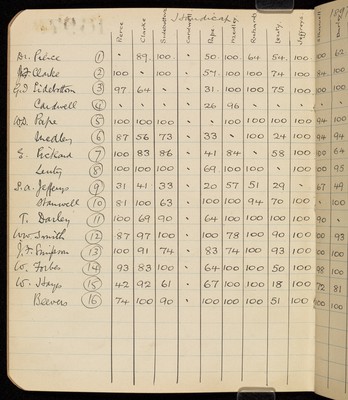 Handicap
Pierce Clarke Sidebottom Cardwell Pape Medley Pickard Lenty Jeffreys Stanwell Darley
Dr. Pierce 1 . 89 100 . 50 100 64 54 100 100 62
Clarke 2 100 . 100 . 100 100 74 100 84 100
Sidebottom 3 97 64 . . 31 100 100 75 100 100 100
Cardwell 4 . . . . 26 96
Pape 5 100 100 100 . . 100 100 100 100 94 100
Medley 6 87 56 73 . 33 . 100 24 100 94 94
S. Pickard 7 100 83 86 . 41 84 . 58 100 100 64
Lenty 8 100 100 100 . 69 100 100 . 100 100 95
Jeffreys 9 31 41 33 . 20 57 51 29 . 67 49
Stanwell 10 81 100 63 . 100 100 94 70 100 . 100
T. Darley 11 100 69 90 . 64 100 100 100 100 90 .
Wm Smith 12 87 97 100 . 100 78 100 90 100 00 93
Simpson 13 100 91 74 . 83 74 100 93 100 00 100
W. Forbes 14 93 83 100 . 64 100 100 50 100 98 100
W. Hays 15 42 92 61 . 67 100 100 18 100 72 81
Beevers 16 74 100 90 . 100 100 100 51 100 100 100